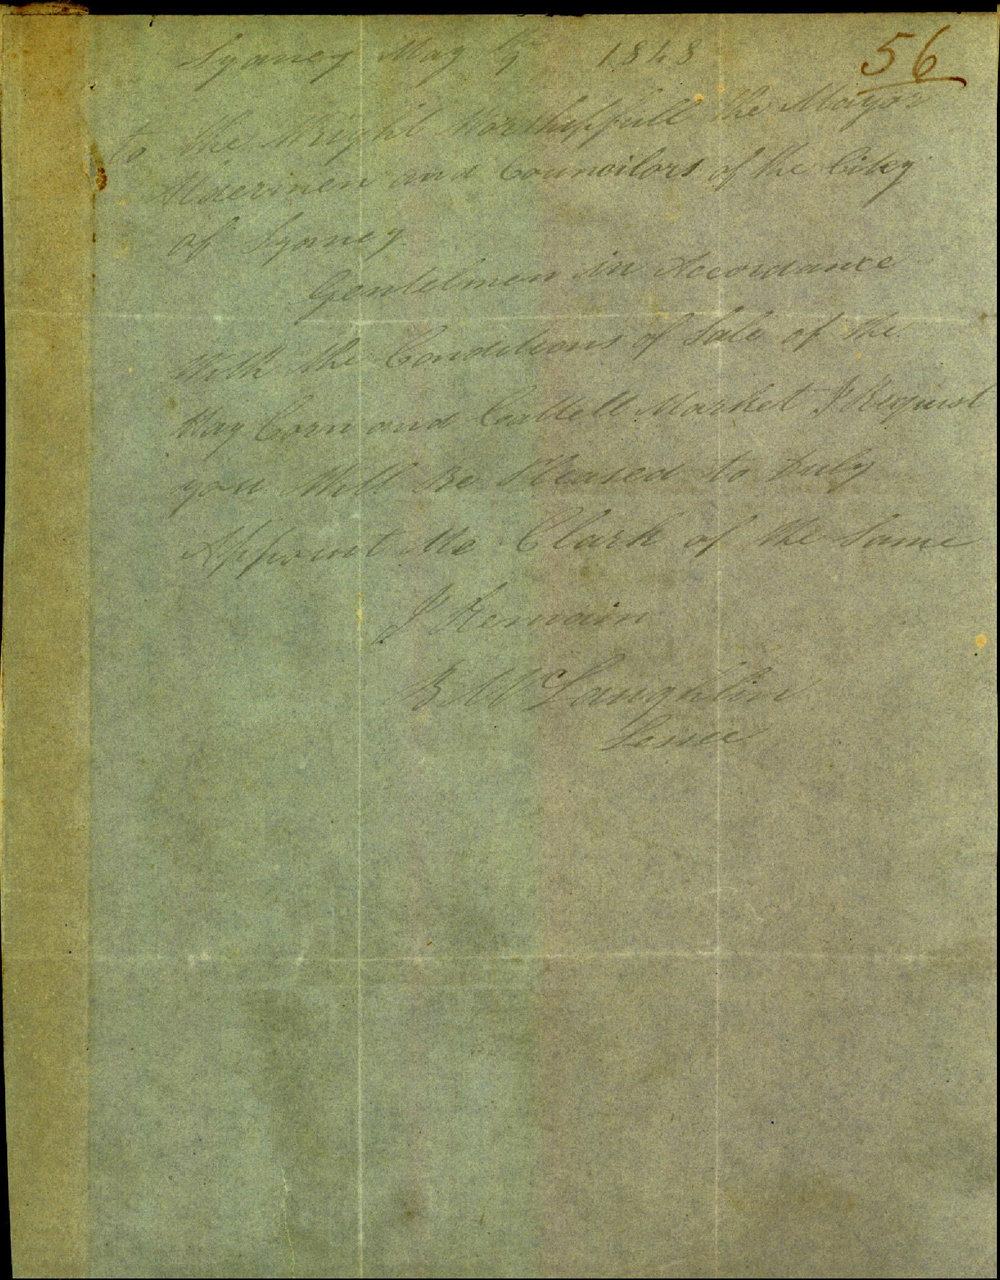 56
Sydney May 1848
to the Right Worshipfull the Mayor
Aldermen and Councilors of the City
of Sydney
Gentelmen in Accordance
With the Conditions of Sale of the
Hay Corn and Cattell Market I Request
you Will Be Pleased to Duly
Appoint Me Clark of the Same
I Remain
McLaughlin
Lessee